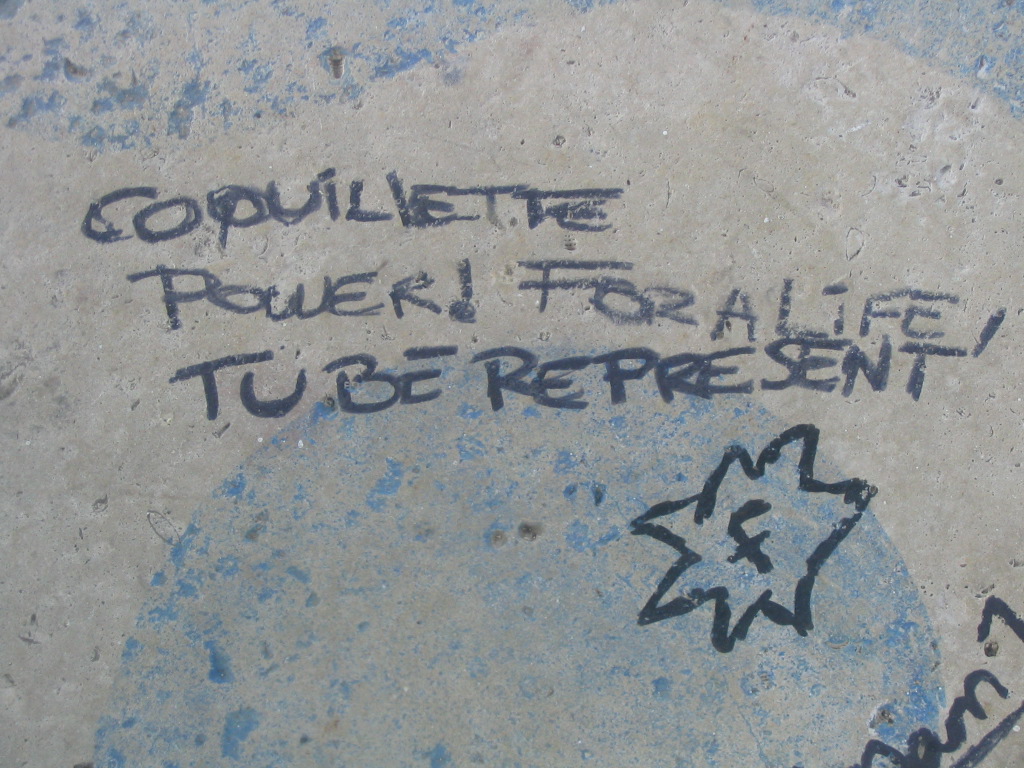 COQUILLETTE
POWER! FOR A LiFE,
TU BE REPRESENT